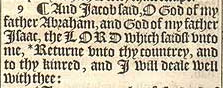 9 ¶ And Jacob said, O God of my
father Abraham, and God of my father
Isaac, the LORD which saidst vnto
me, *Returne vnto thy countrey, and
to thy kinred, and I will deale well
with thee: